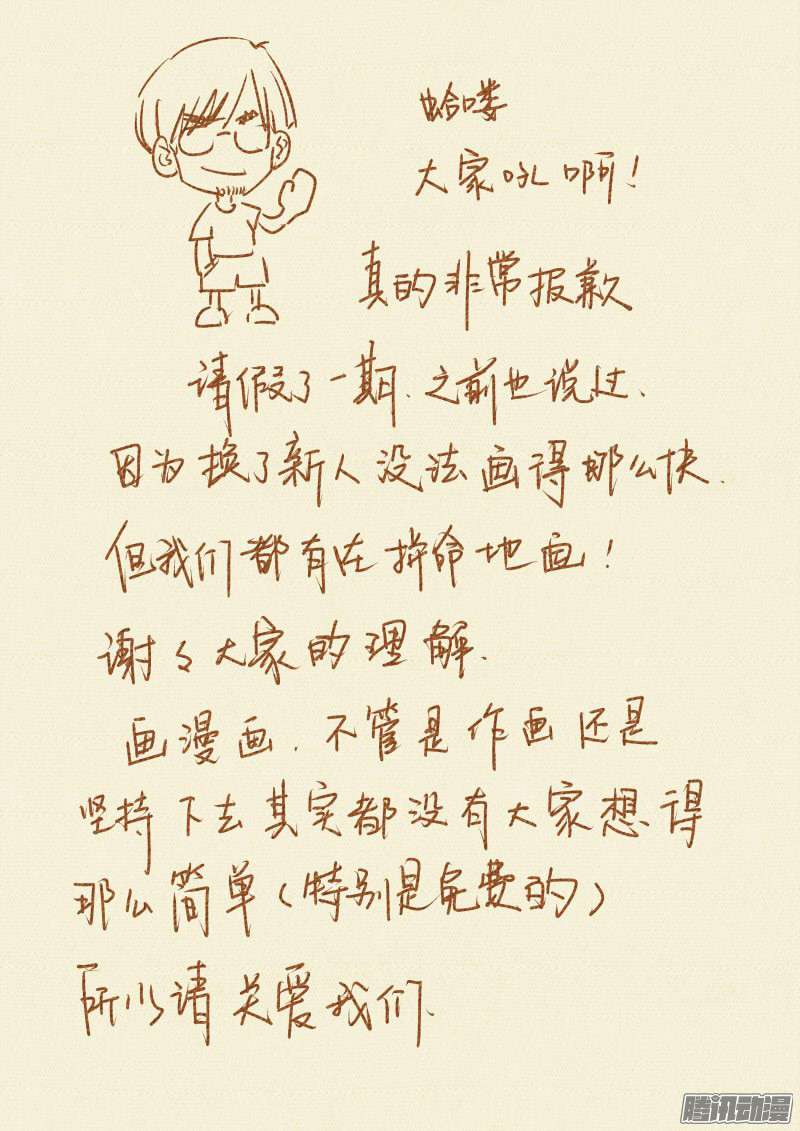 蛤喽
大家吼啊！
真的非常报歉
请假了一期、之前也说过、
因为换了新人没法画得那么快.
但我们都有在拚命地画！
谢々大家的理解.
画漫画.不管是作画还是
坚持下去其实都没有大家想得
那么简单（特别是免费的）
所以请关爱我们.
腾讯动漫